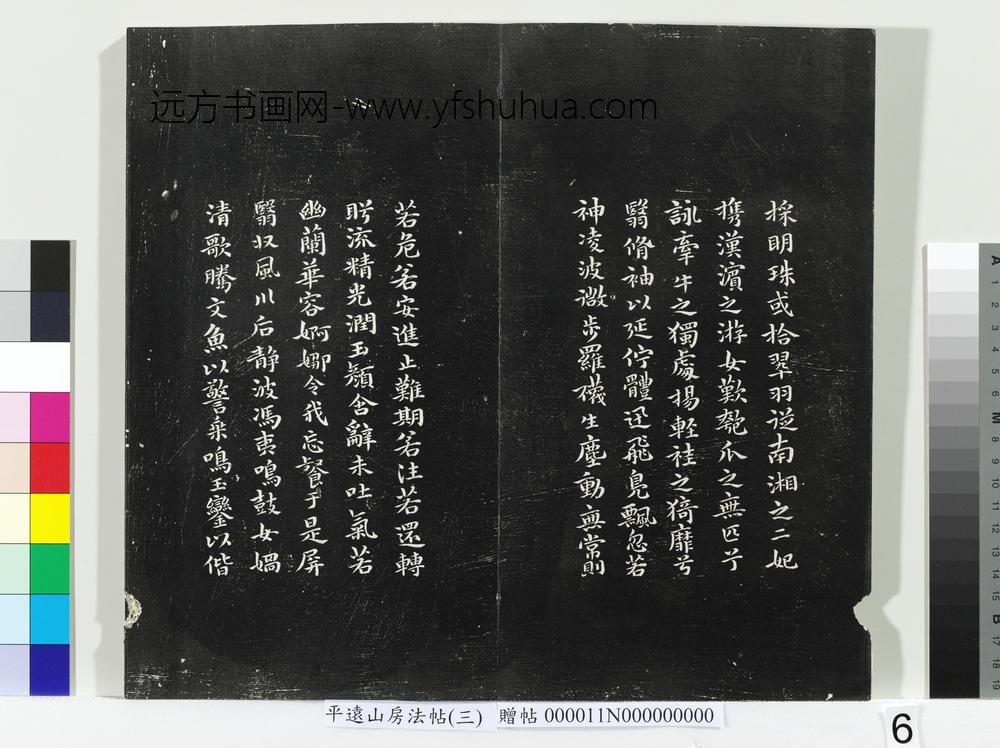 远方书画网-www.yfshuhua.com
採明珠或拾翠羽從南湘之二妃
攜漢濱之游女歎匏瓜之無匹兮
詠牽牛之獨處揚輕袿之猗靡兮
翳脩袖以延佇體迅飛鳧飄忽若
神凌波微步羅襪生塵動無常則
若危若安進止難期若注若還轉
眄流精光潤玉顏含辭未吐氣若
幽蘭華容婀娜令我忘餐于是屏
翳收風川后靜波馮夷鳴鼓女媧
清歌騰文魚以警乘鳴玉鑾以偕
平遠山房法帖(三) 贈帖 000011N000000000
6